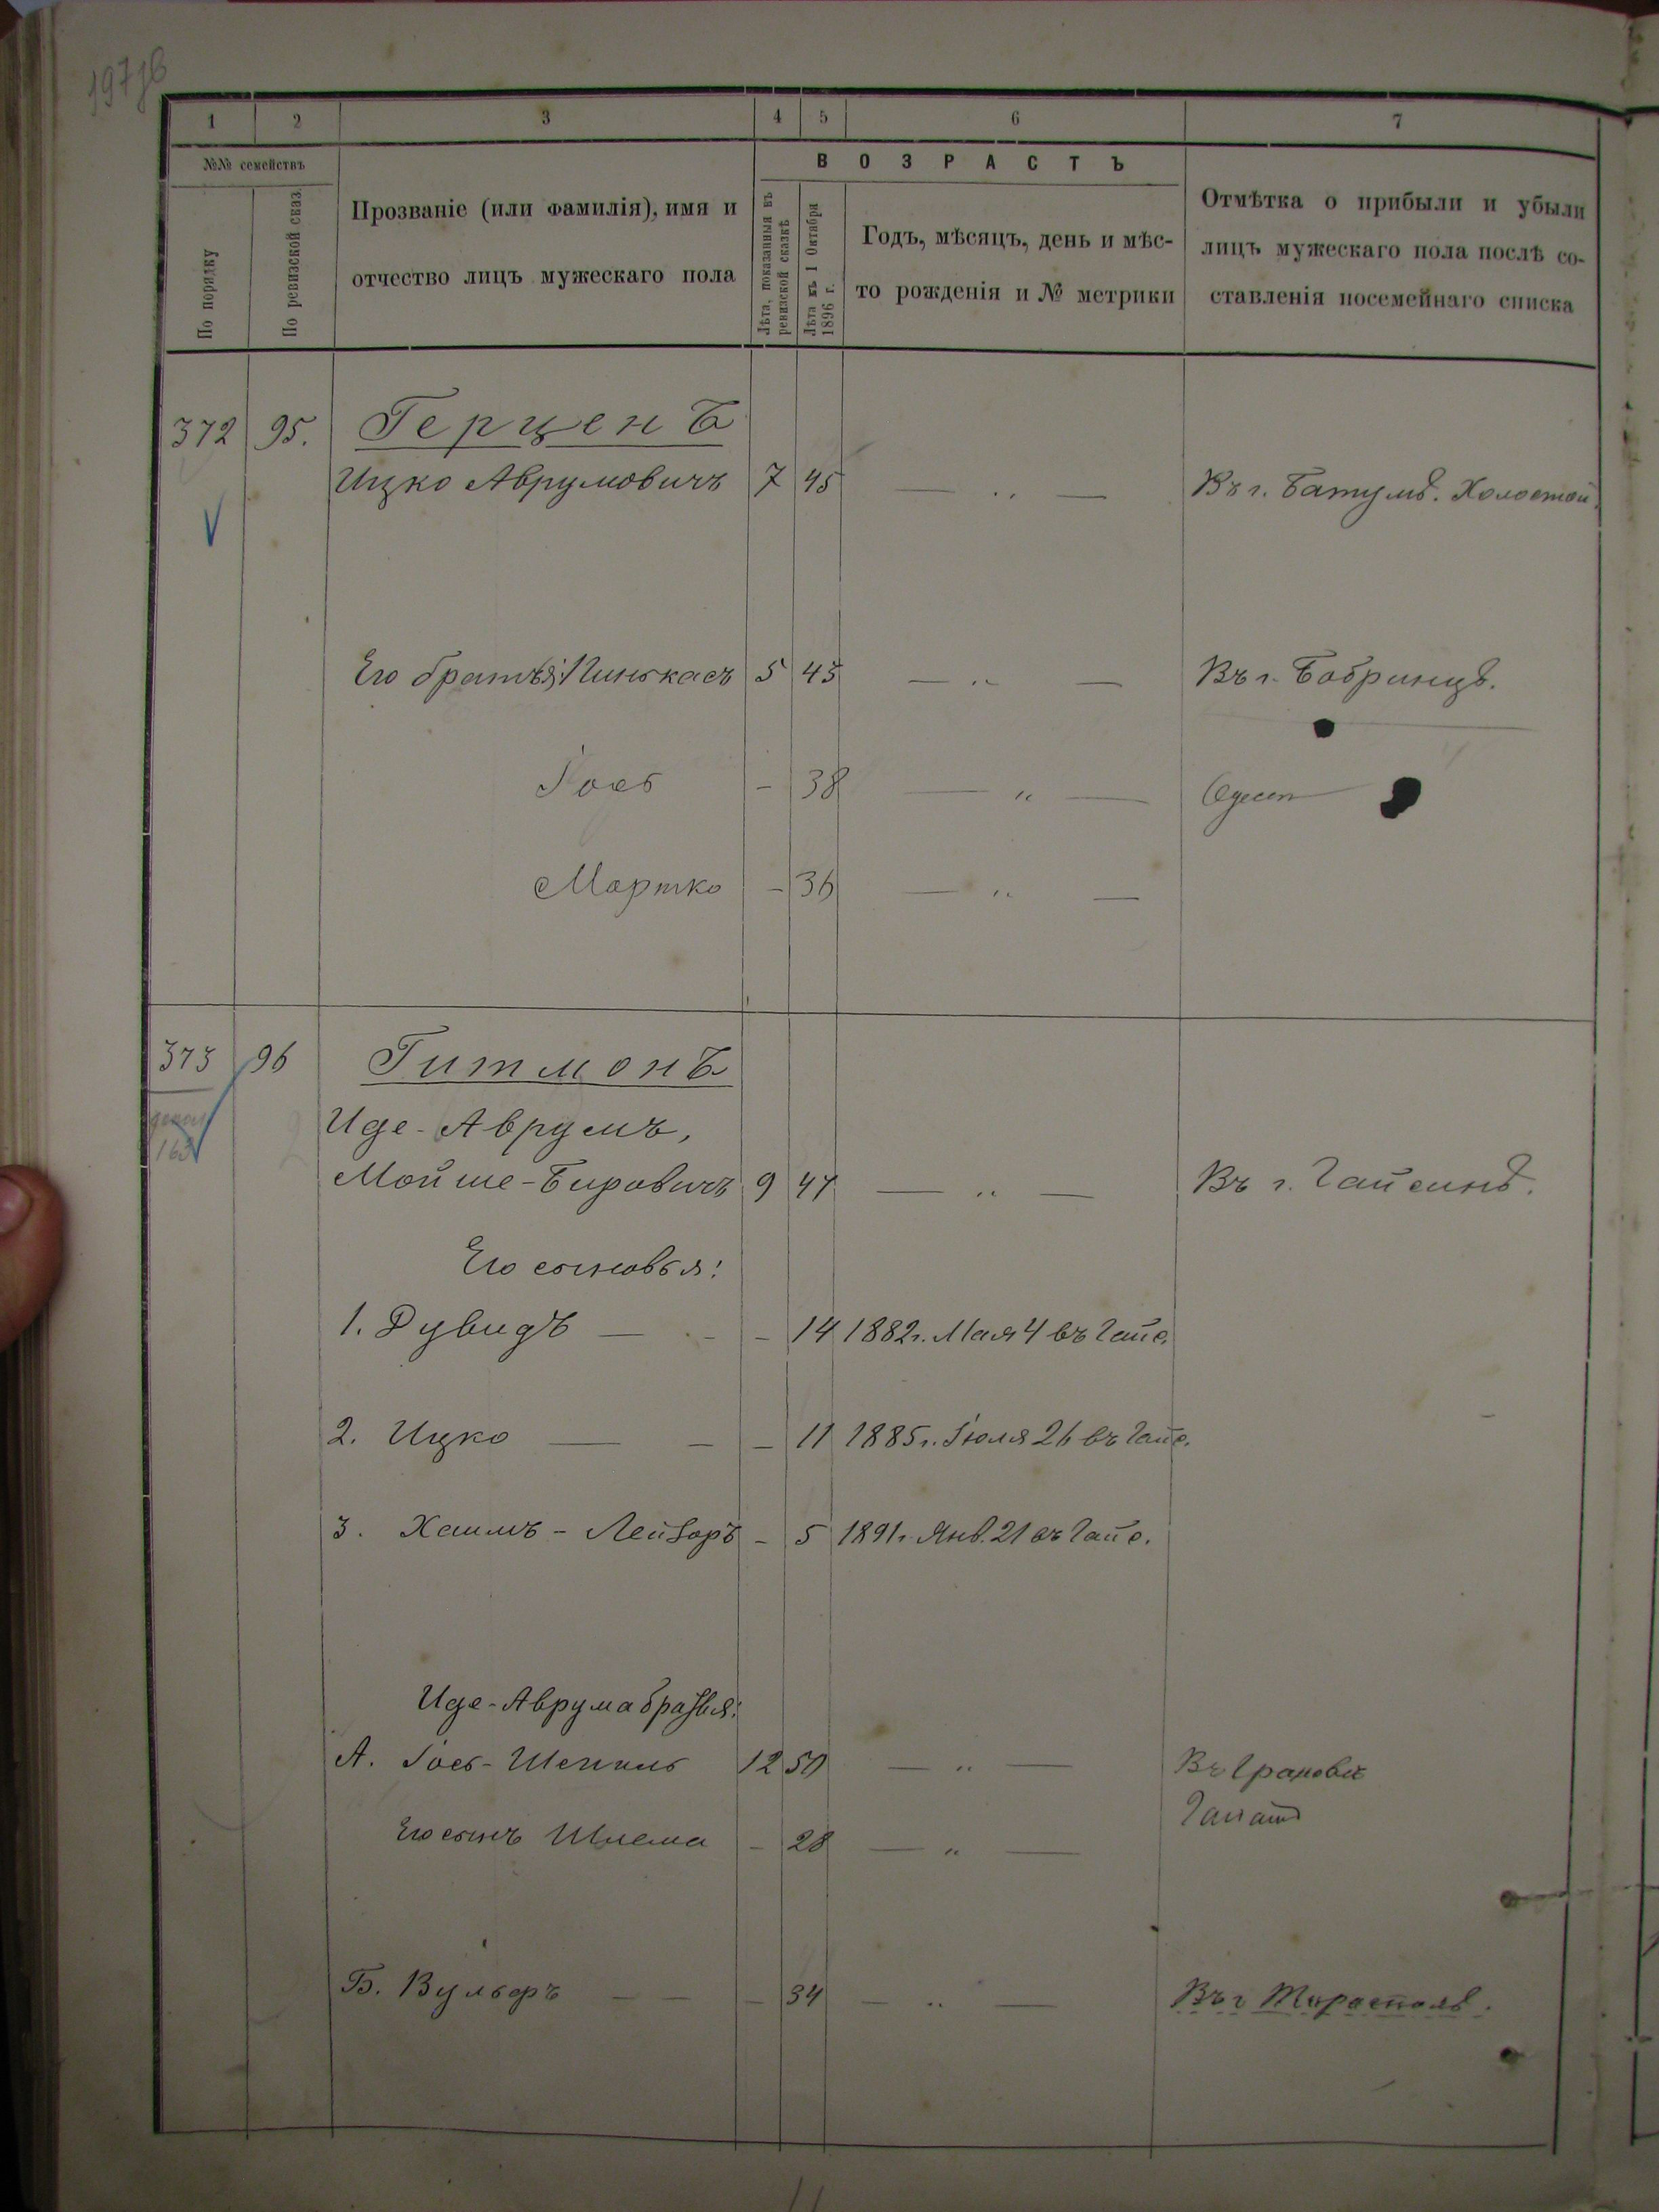 197 об
1 2 3 4 5 6 7
№№ семействъ
По порядку
По ревизской сказ.
Прозваніе (или фамилія), имя и
отчество лицъ мужескаго пола
ВОЗРАСТЪ
Лѣта, показанныя въ
ревизской сказкѣ
Лѣта къ 1 Октября
1896 г.
Годъ, мѣсяцъ, день и мѣс-
то рожденія и № метрики
Отмѣтка о прибыли и убыли
лицъ мужескаго пола послѣ со-
ставленія посемейнаго списка
372 95. Герценъ
Ицко Аврумовичъ 7 45 — „ — Въ г. Батумѣ. Холостой.
Его братья: Пинькасъ 5 43 — „ — Въ г. Бобринцѣ.
Іось - 38 — „ — Одесса
Мартко - 36 — „ —
373 96 Гитмонъ
163
Иде-Аврумъ,
Мойше-Беровичъ 9 47 — „ — Въ г. Гайсинѣ.
Его сыновья:
1. Дувидъ — - - 14 1882 г. Мая 4 въ Гайс.
2. Ицко — - - 11 1885 г. Іюля 26 въ Гайс.
3. Хаимъ-Лейзоръ - 5 1891 г. Янв. 21 въ Гайс.
Иде-Аврума братья:
А. Іось-Шепиль 12 50 — „ — Въ Грановѣ
Его сынъ Шлема - 28 — „ —
Б. Вульфъ — — - 34 — „ — Въ г Тирасполѣ.